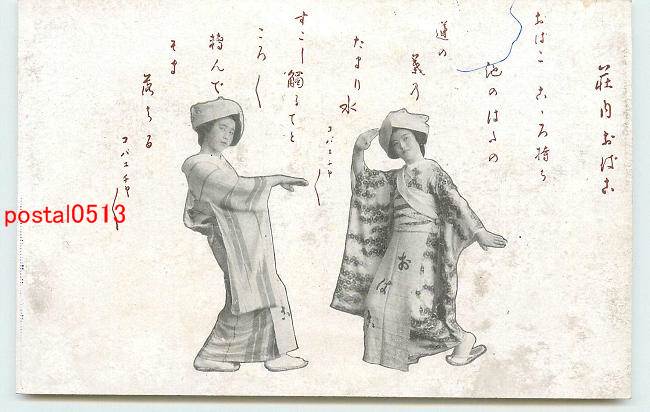 荘内おばこ
おばこ こゝろ持ち
池のはたの
蓮の
葉の
たまり水
コバエテヤ〱
すこし觸るてと
ころ〱
轉んで
そま
落ちる
コバエテヤ〱
おばこ
postal0513